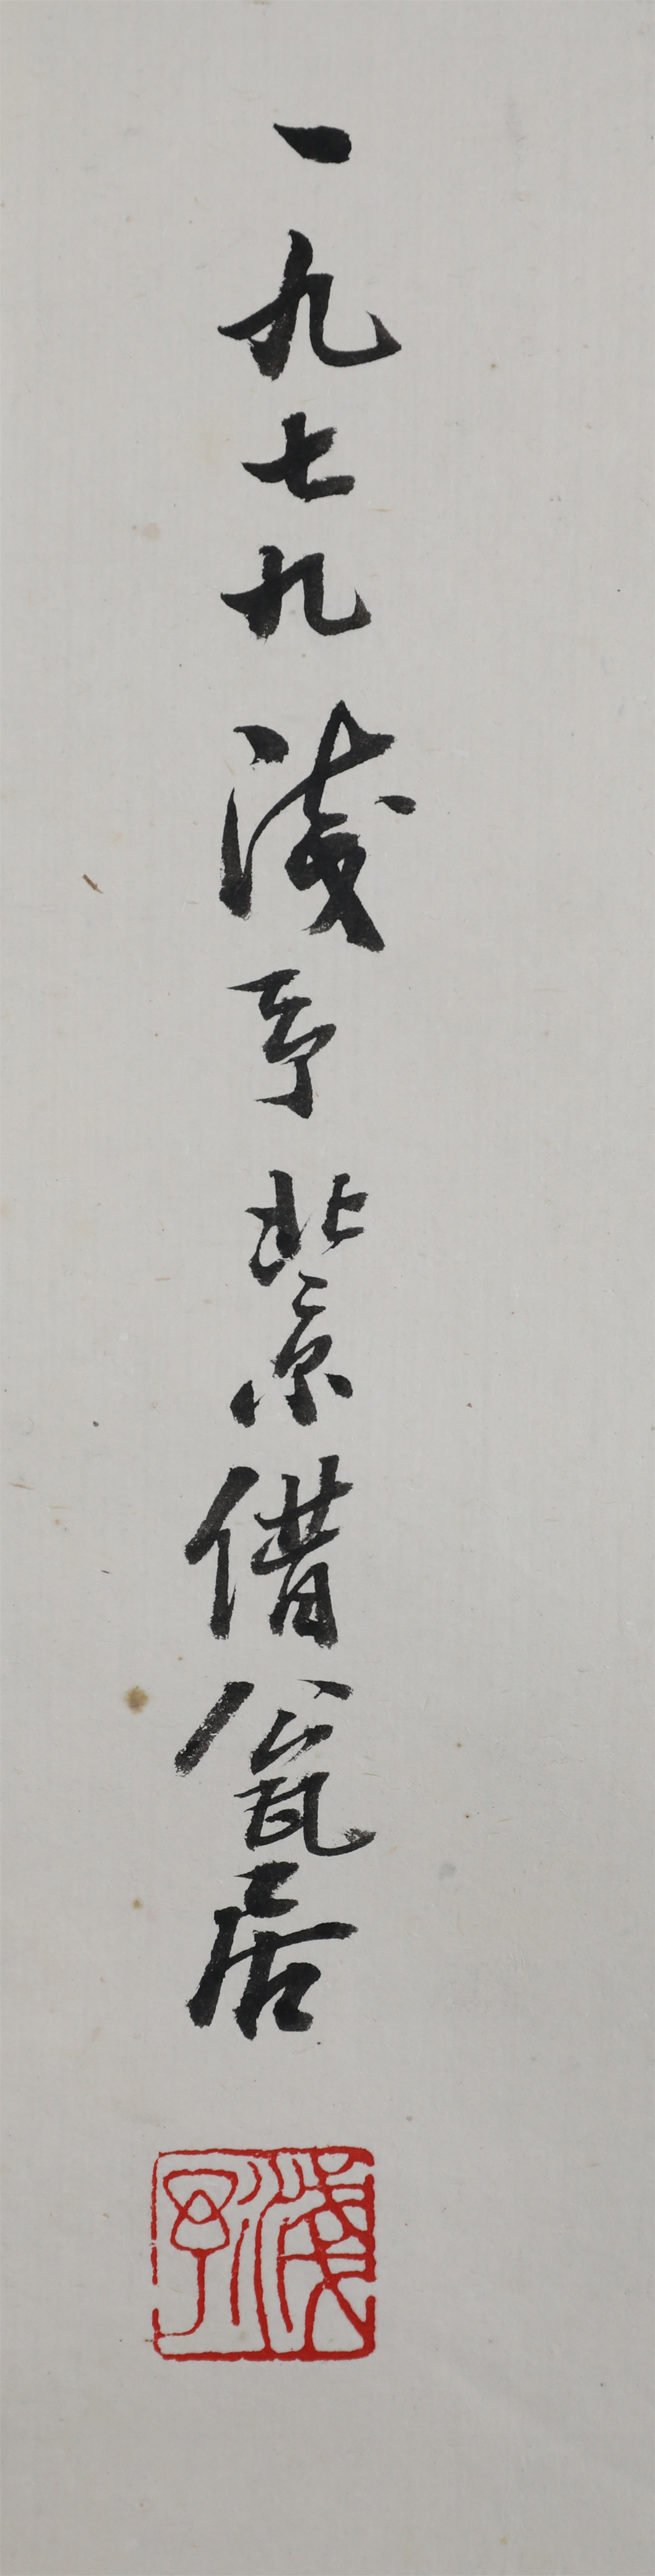 一九七九淺予北京借瓮居
淺予